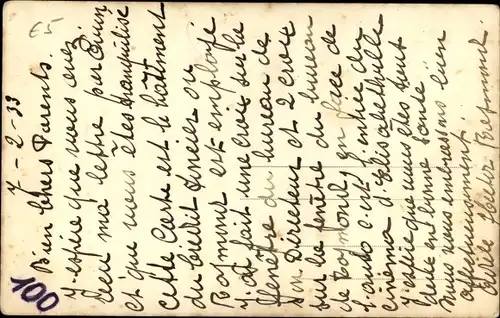 €5
100
7-2-33
Bien Chers Parents.
J'espère que vous avez
reçu ma lettre par Avion
et que vous êtes tranquilise
cette Carte est le bâtiment
du Crédit foncier ou
Raymond est employé
J'ai fait une croix sur la
fenêtre du bureau de
son Directeur et 2 croix
sur la fenêtre du bureau
de Raymond, en face de
l'auto c'est l'entrée du
cinema d'Elisabethville
J'espère que vous êtes tout
toute en bonne santé
Nous vous embrassons bien
affectueusement
Raymond.